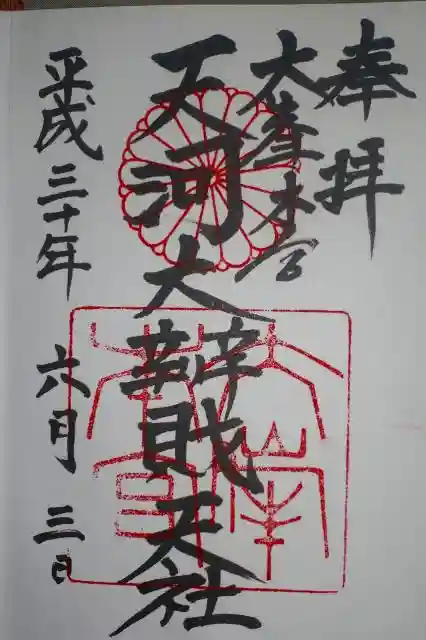 奉拝
大峯本宮
天河大辨財天社
平成三十年 六月 三日